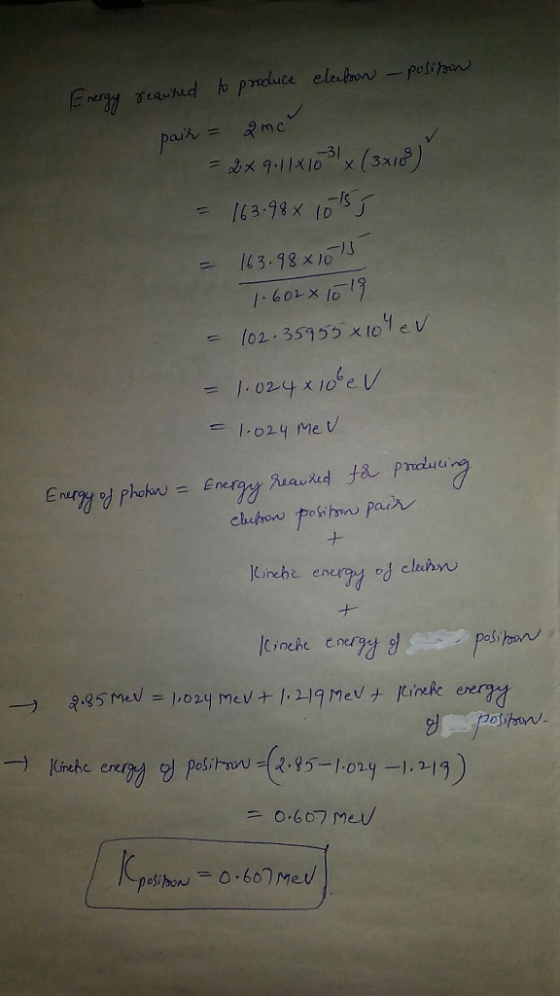 Energy required to produce electron - positron
pair = 2mc²
= 2 × 9.11×10⁻³¹ × (3×10⁸)²
= 163.98 × 10⁻¹⁵ J
= 163.98 × 10⁻¹⁵
1.602 × 10⁻¹⁹
= 102.35955 × 10⁴ eV
= 1.024 × 10⁶ eV
= 1.024 MeV
Energy of photon = Energy required for producing
electron positron pair
+
Kinetic energy of electron
+
Kinetic energy of positron
→ 2.85 MeV = 1.024 MeV + 1.219 MeV + Kinetic energy
of positron.
→ Kinetic energy of positron = (2.85 - 1.024 - 1.219)
= 0.607 MeV
Kpositron = 0.607 MeV.